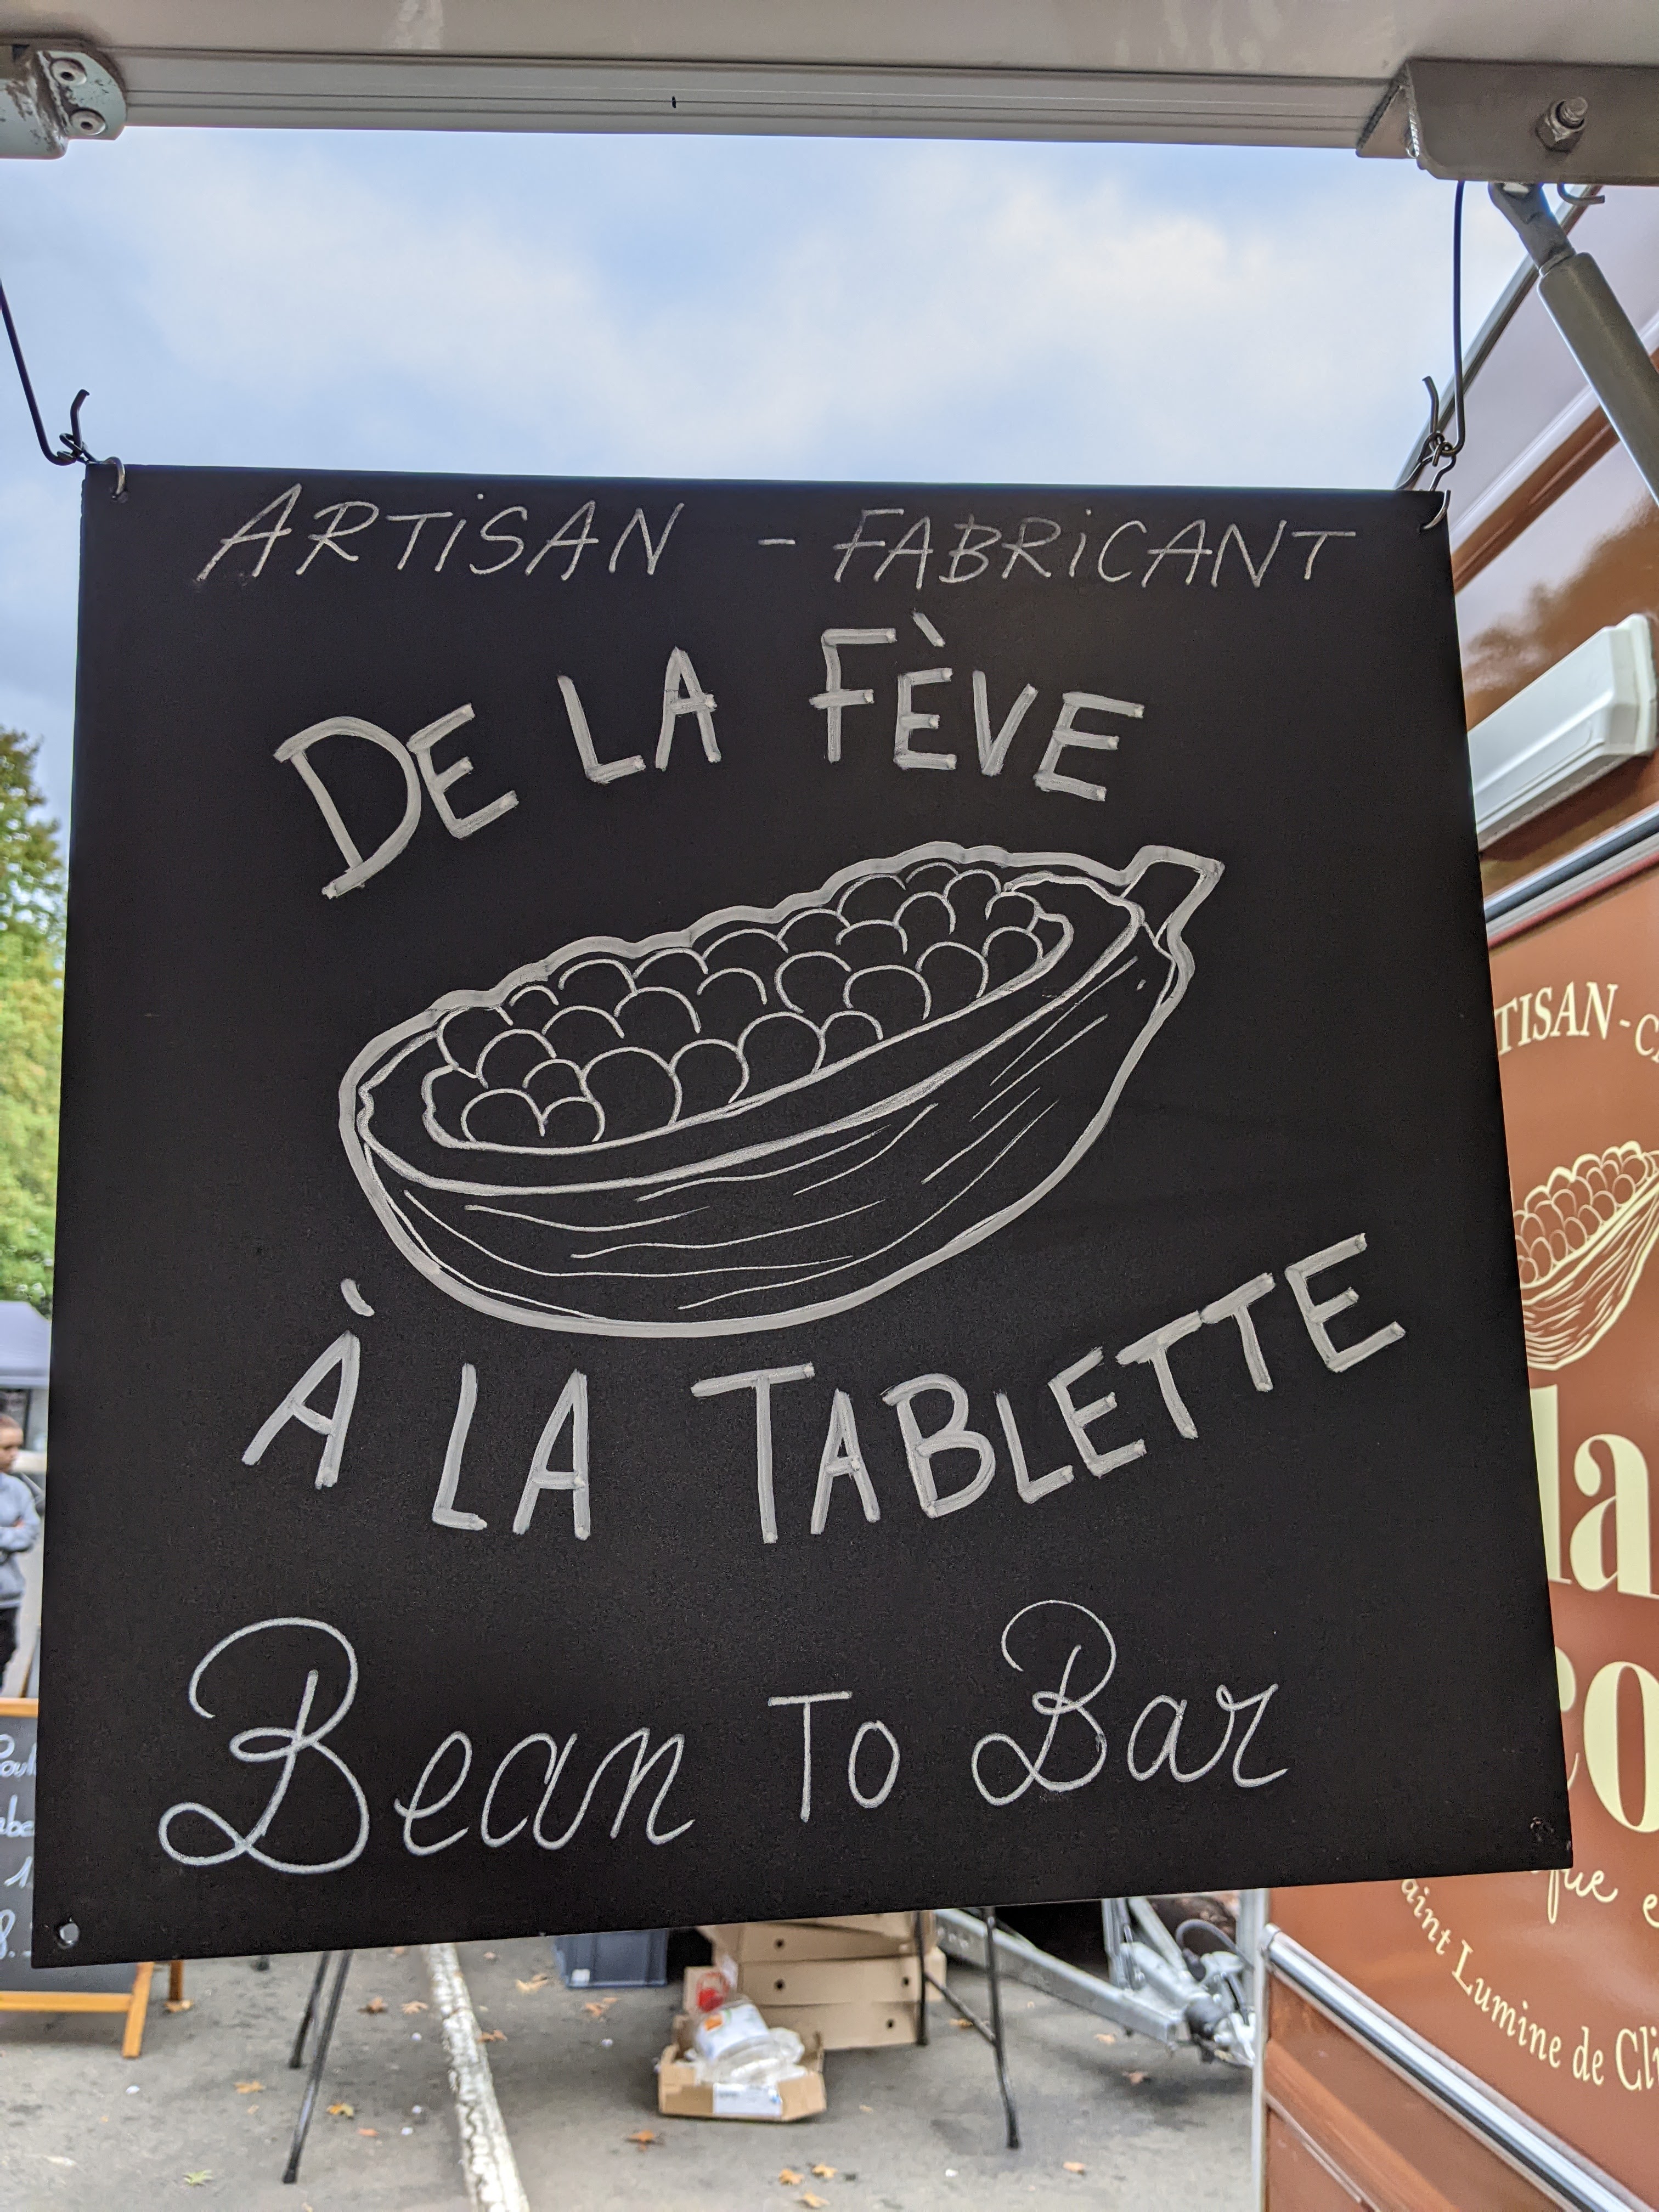 ARTiSAN - FABRiCANT
DE LA FÈVE
À LA TABLETTE
Bean To Bar
TISAN - C
la
co
que e
aint Lumine de Cli